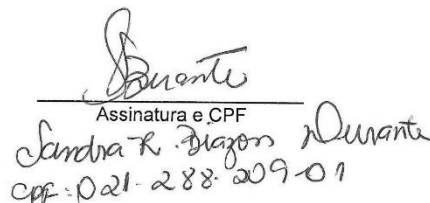 SDurante
Assinatura e CPF
Sandra R. Brazon Durante
CPF: 021-288-209-01